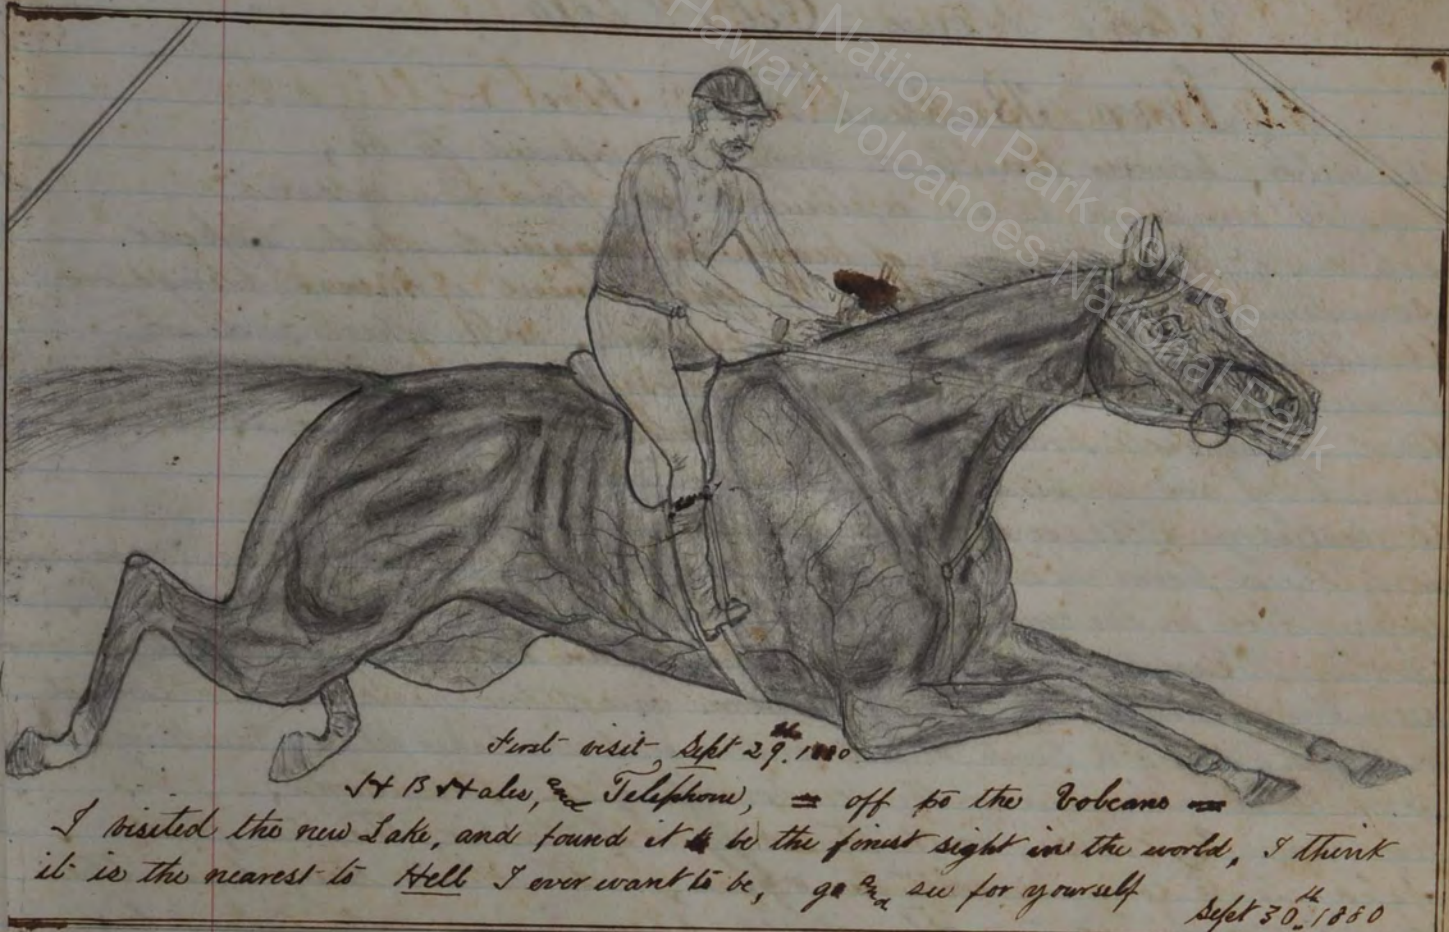 National Park Service
Hawai'i Volcanoes National Park
First visit, Sept 29.th 1880.
H B Hales, and Telephone, = off to the Volcano =
I visited the new Lake, and found it to be the finest sight in the world, I think
it is the nearest to Hell I ever want to be, go and see for yourself
Sept 30.th 1880